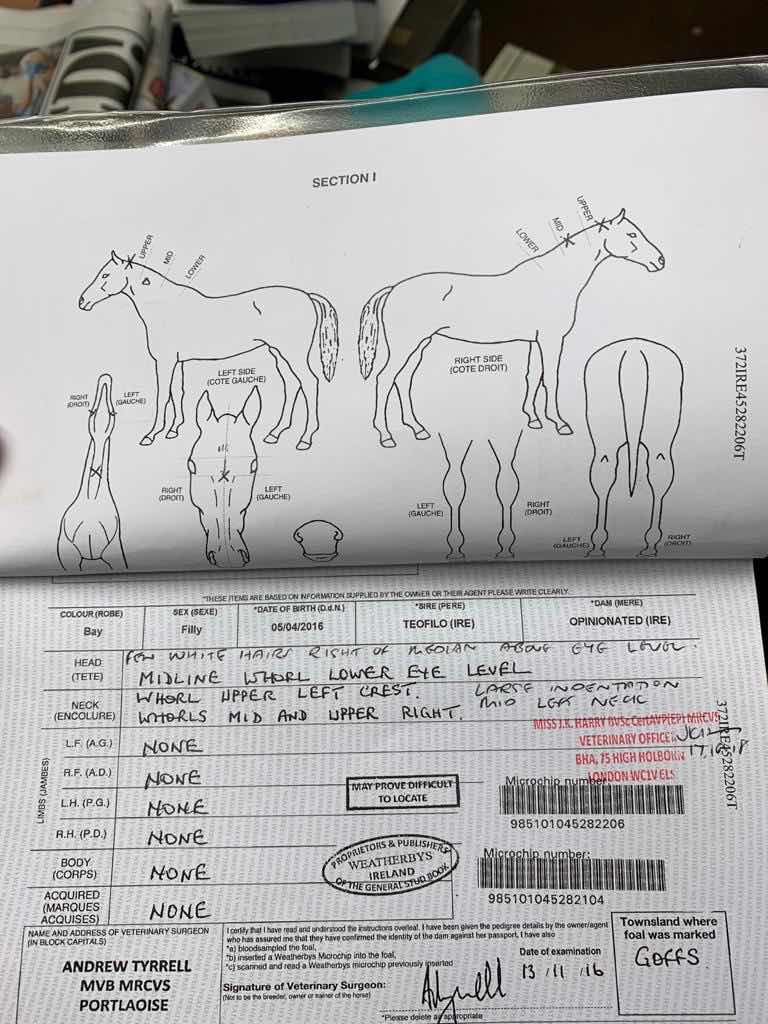 SECTION I
UPPER
MID
LOWER
LOWER
MID
UPPER
LEFT SIDE
(COTE GAUCHE)
RIGHT SIDE
(COTE DROIT)
RIGHT
(DROIT)
LEFT
(GAUCHE)
RIGHT
(DROIT)
LEFT
(GAUCHE)
LEFT
(GAUCHE)
RIGHT
(DROIT)
LEFT
(GAUCHE)
RIGHT
(DROIT)
372IRE45282206T
*THESE ITEMS ARE BASED ON INFORMATION SUPPLIED BY THE OWNER OR THEIR AGENT PLEASE WRITE CLEARLY.
COLOUR (ROBE)
Bay
SEX (SEXE)
Filly
*DATE OF BIRTH (D.d.N.)
05/04/2016
*SIRE (PERE)
TEOFILO (IRE)
*DAM (MERE)
OPINIONATED (IRE)
HEAD
(TETE)
FEW WHITE HAIRS RIGHT OF MEDIAN ABOVE EYE LEVEL.
MIDLINE WHORL LOWER EYE LEVEL
NECK
(ENCOLURE)
WHORL UPPER LEFT CREST. LARGE INDENTATION
WHORLS MID AND UPPER RIGHT. MID LEFT NECK
MISS J.K. HARRY BVSc CertAVP(EP) MRCVS
VETERINARY OFFICER
BHA, 75 HIGH HOLBORN
LONDON WC1V ELS
372IRE45282206T
LIMBS (JAMBES)
L.F. (A.G.) NONE
R.F. (A.D.) NONE
L.H. (P.G.) NONE
R.H. (P.D.) NONE
BODY
(CORPS)
NONE
ACQUIRED
(MARQUES
ACQUISES)
NONE
MAY PROVE DIFFICULT
TO LOCATE
PROPRIETORS & PUBLISHERS
WEATHERBYS
IRELAND
OF THE GENERAL STUD BOOK
Microchip number:
985101045282206
Microchip number:
985101045282104
NAME AND ADDRESS OF VETERINARY SURGEON
(IN BLOCK CAPITALS)
ANDREW TYRRELL
MVB MRCVS
PORTLAOISE
I certify that I have read and understood the instructions overleaf. I have been given the pedigree details by the owner/agent
who has assured me that they have confirmed the identity of the dam against her passport. I have also
*a) bloodsampled the foal,
*b) inserted a Weatherbys Microchip into the foal,
*c) scanned and read a Weatherbys microchip previously inserted
Date of examination
13/11/16
Signature of Veterinary Surgeon:
(Not to be the breeder, owner or trainer of the horse)
*Please delete as appropriate
Townsland where
foal was marked
GOFFS